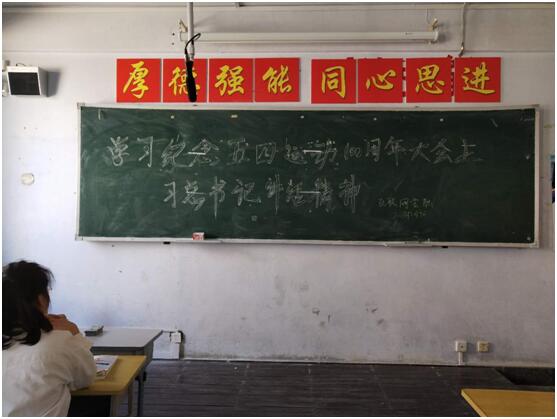 厚德强能 同心思进
学习纪念五四运动100周年大会上
习总书记讲话精神